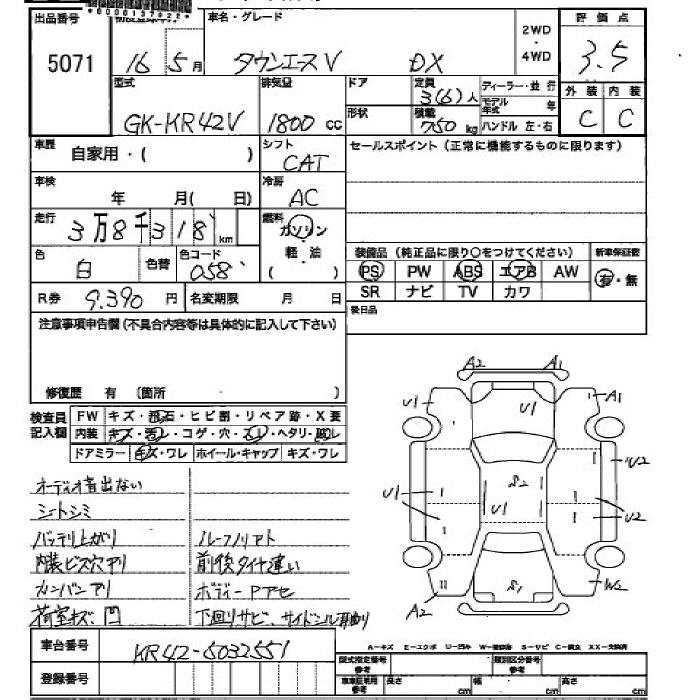 出品番号 車名・グレード 2WD 評価点
5071 16 5月 タウンエースV DX ・ 4WD 3.5
型式 排気量 ドア 定員 3(6)人 ディーラー・並行 外装 内装
GK-KR42V 1800 cc 形状 積載 750 kg モデル年式 年 C C
ハンドル 左・右
車歴 自家用・( ) シフト CAT セールスポイント(正常に機能するものに限ります)
車検 年 月( 日) 冷房 AC
走行 3万8千318 km 燃料 ガソリン
軽・油
( )
色 白 色替 色コード 058 装備品(純正品に限り○をつけてください) 新車保証書
PS PW ABS エアB AW 有・無
R券 9,390 円 名変期限 月 日 SR ナビ TV カワ
注意事項申告欄(不具合内容等は具体的に記入して下さい) 後日品
修復歴 有 (箇所 )
検査員記入欄 FW キズ・飛石・ヒビ割・リペア跡・X要
内装 キズ・汚レ・コゲ・穴・スレ・ヘタリ・破レ
ドアミラー キズ・ワレ ホイール・キャップ キズ・ワレ
オーディオ音出ない
シートシミ
バッテリ上がり ルーフリアト
内装ビス穴アリ 前後タイヤ違い
カンバンアリ ボディーPアセ
荷室キズ、凹 下廻りサビ、サイドシル
A2 A1
U1 U1 A1
U2
S2
U1 U1 U2
A2 S1 W2
A-キズ E-エクボ U-凹み W-補修跡 S-サビ C-腐食 XX-交換済
車台番号 KR42-5032551
型式指定番号 参考 類別区分番号 参考
登録番号 長さ cm 幅 cm 高さ cm